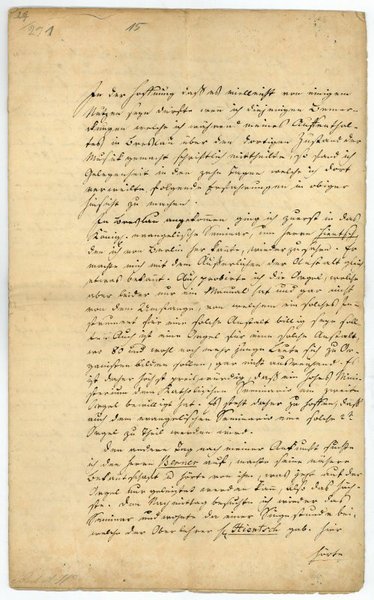 271
15
In der Hoffnung daß es vielleicht von einigem
Nutzen seyn dürfte wen ich diejenigen Bemer-
kungen welche ich während meines Aufenthal-
tes in Breslau über den dortigen Zustand der
Musik gemacht schriftlich mittheilte, so fand ich
Gelegenheit in den zehn Tagen welche ich dort
verweilte folgende Erfahrungen in obiger
Hinsicht zu machen.
In Breslau angekommen ging ich zuerst in das
Königl. evangelische Seminar, um Herrn Hientsch
den ich von Berlin her kante, wieder zu sehen. Er
machte mich mit dem Äußerlichen der Anstalt gleich
etwas bekant. Auch probirte ich die Orgel, welche
aber leider nur ein Manual hat und gar nicht
von dem Umfange, von welchem ein solches In-
strument für eine solche Anstalt billig seyn soll-
te. Auch ist eine Orgel für eine solche Anstalt
wo 80 und wohl noch mehr junge Leute sich zu Or-
ganisten bilden sollen, gar nicht ausreichend. Es
ist daher höchst preiswürdig, daß ein hohes Mini-
sterium dem katholischen Seminario eine zweite
Orgel bewilligt hat. Es steht daher zu hoffen, daß
auch dem evangelischen Seminario eine solche 2te
Orgel zu Theil werden wird.
Den andern Tag nach meiner Ankunft suchte
ich den Herrn Berner auf, machte seine nähere
Bekantschaft und hörte von ihm, was jetzt auf der
Orgel nur geleistet werden kan, also das Höch-
ste. Den Nachmittag besuchte ich wieder das
Seminar und wohnte da einer Singestunde bei,
welche der Oberlehrer H. Hientsch gab. Hier
hörte